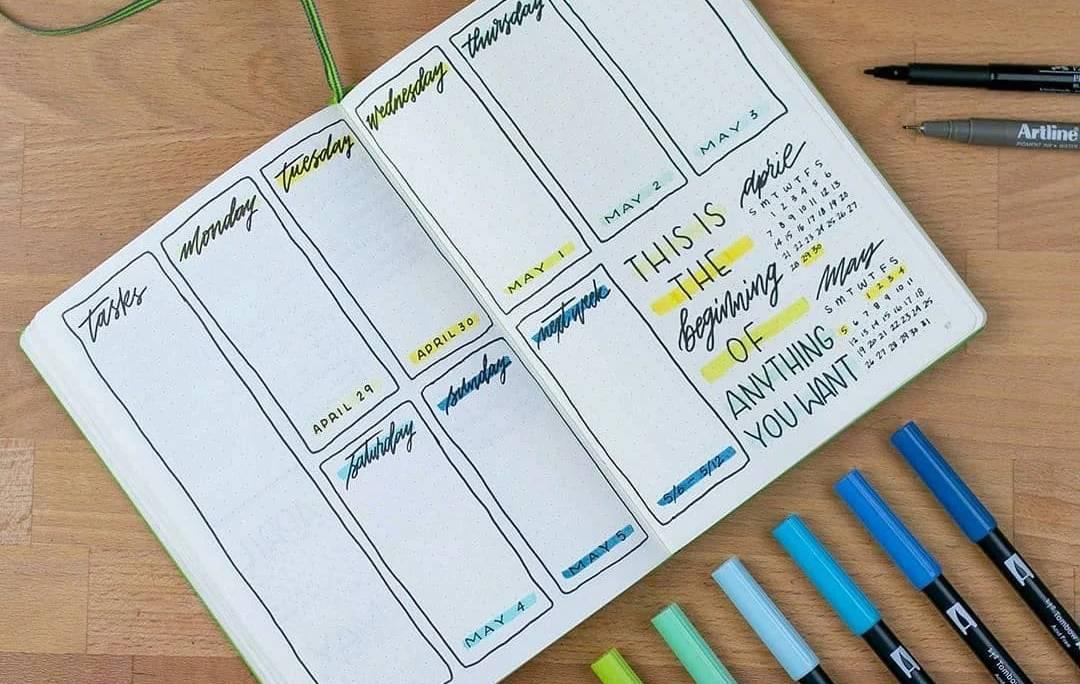 tasks
monday
APRIL 29
tuesday
APRIL 30
wednesday
MAY 1
thursday
MAY 2
MAY 3
saturday
MAY 4
sunday
MAY 5
next week
5/6 - 5/12
THIS IS
THE
beginning
OF
ANYTHING
YOU WANT
april
S M T W T F S
1 2 3 4 5 6
7 8 9 10 11 12 13
14 15 16 17 18 19 20
21 22 23 24 25 26 27
28 29 30
May
S M T W T F S
1 2 3 4
5 6 7 8 9 10 11
12 13 14 15 16 17 18
19 20 21 22 23 24 25
26 27 28 29 30 31
Artline
PIGMENT INK
Tombow
Tombow